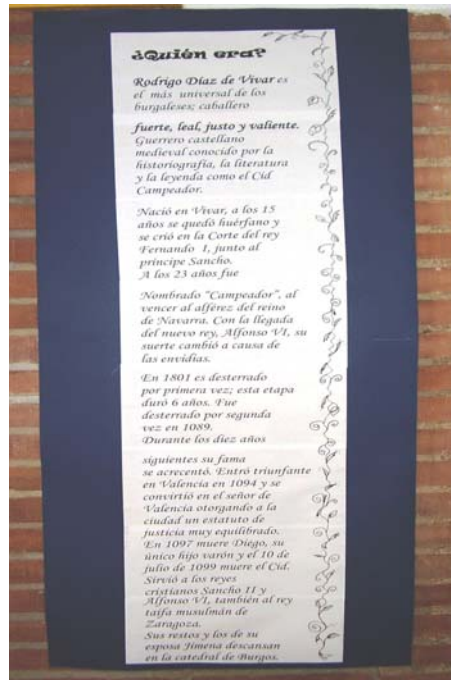 ¿Quién era?
Rodrigo Díaz de Vivar es
el más universal de los
burgaleses; caballero
fuerte, leal, justo y valiente.
Guerrero castellano
medieval conocido por la
historiografía, la literatura
y la leyenda como el Cid
Campeador.
Nació en Vivar, a los 15
años se quedó huérfano y
se crió en la Corte del rey
Fernando I, junto al
príncipe Sancho.
A los 23 años fue
Nombrado "Campeador", al
vencer al alférez del reino
de Navarra. Con la llegada
del nuevo rey, Alfonso VI, su
suerte cambió a causa de
las envidias.
En 1801 es desterrado
por primera vez; esta etapa
duró 6 años. Fue
desterrado por segunda
vez en 1089.
Durante los diez años
siguientes su fama
se acrecentó. Entró triunfante
en Valencia en 1094 y se
convirtió en el señor de
Valencia otorgando a la
ciudad un estatuto de
justicia muy equilibrado.
En 1097 muere Diego, su
único hijo varón y el 10 de
julio de 1099 muere el Cid.
Sirvió a los reyes
cristianos Sancho II y
Alfonso VI, también al rey
taifa musulmán de
Zaragoza.
Sus restos y los de su
esposa Jimena descansan
en la catedral de Burgos.